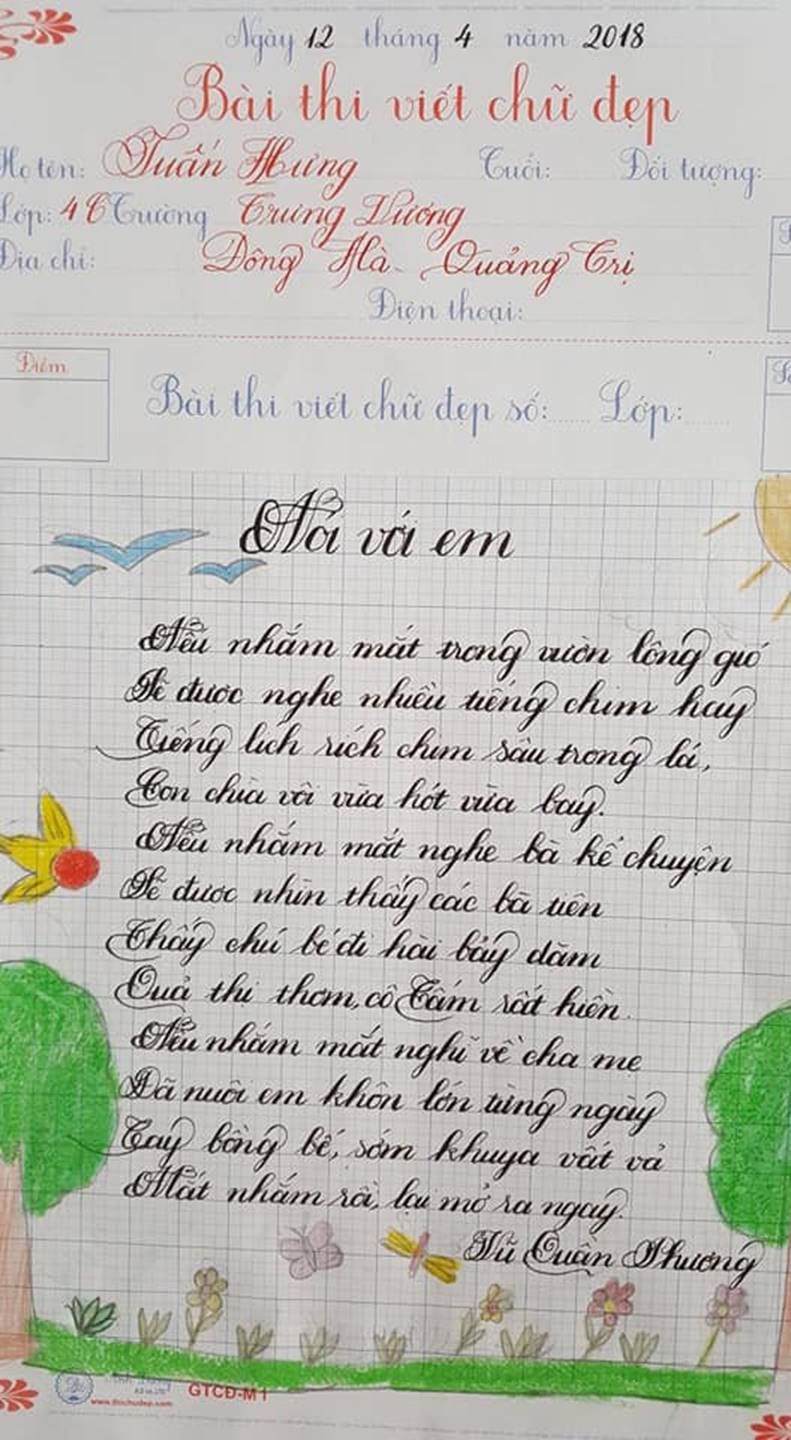 Ngày 12 tháng 4 năm 2018
Bài thi viết chữ đẹp
Họ tên: Tuấn Hưng Tuổi: Đối tượng:
Lớp: 4C Trường Trưng Vương
Địa chỉ: Đông Hà - Quảng Trị
Điện thoại:
Điểm
Bài thi viết chữ đẹp số: Lớp:
Nói với em
Nếu nhắm mắt trong vườn lộng gió
Sẽ được nghe nhiều tiếng chim hay
Tiếng lích rích chim sâu trong lá,
Con chìa vôi vừa hót vừa bay.
Nếu nhắm mắt nghe bà kể chuyện
Sẽ được nhìn thấy các bà tiên
Thấy chú bé đi hài bảy dặm
Quả thị thơm, cô Tấm rất hiền.
Nếu nhắm mắt nghĩ về cha mẹ
Đã nuôi em khôn lớn từng ngày
Tay bồng bế, sớm khuya vất vả
Mắt nhắm rồi, lại mở ra ngay.
Vũ Quần Phương
GTCĐ-M1
www.thichudep.com